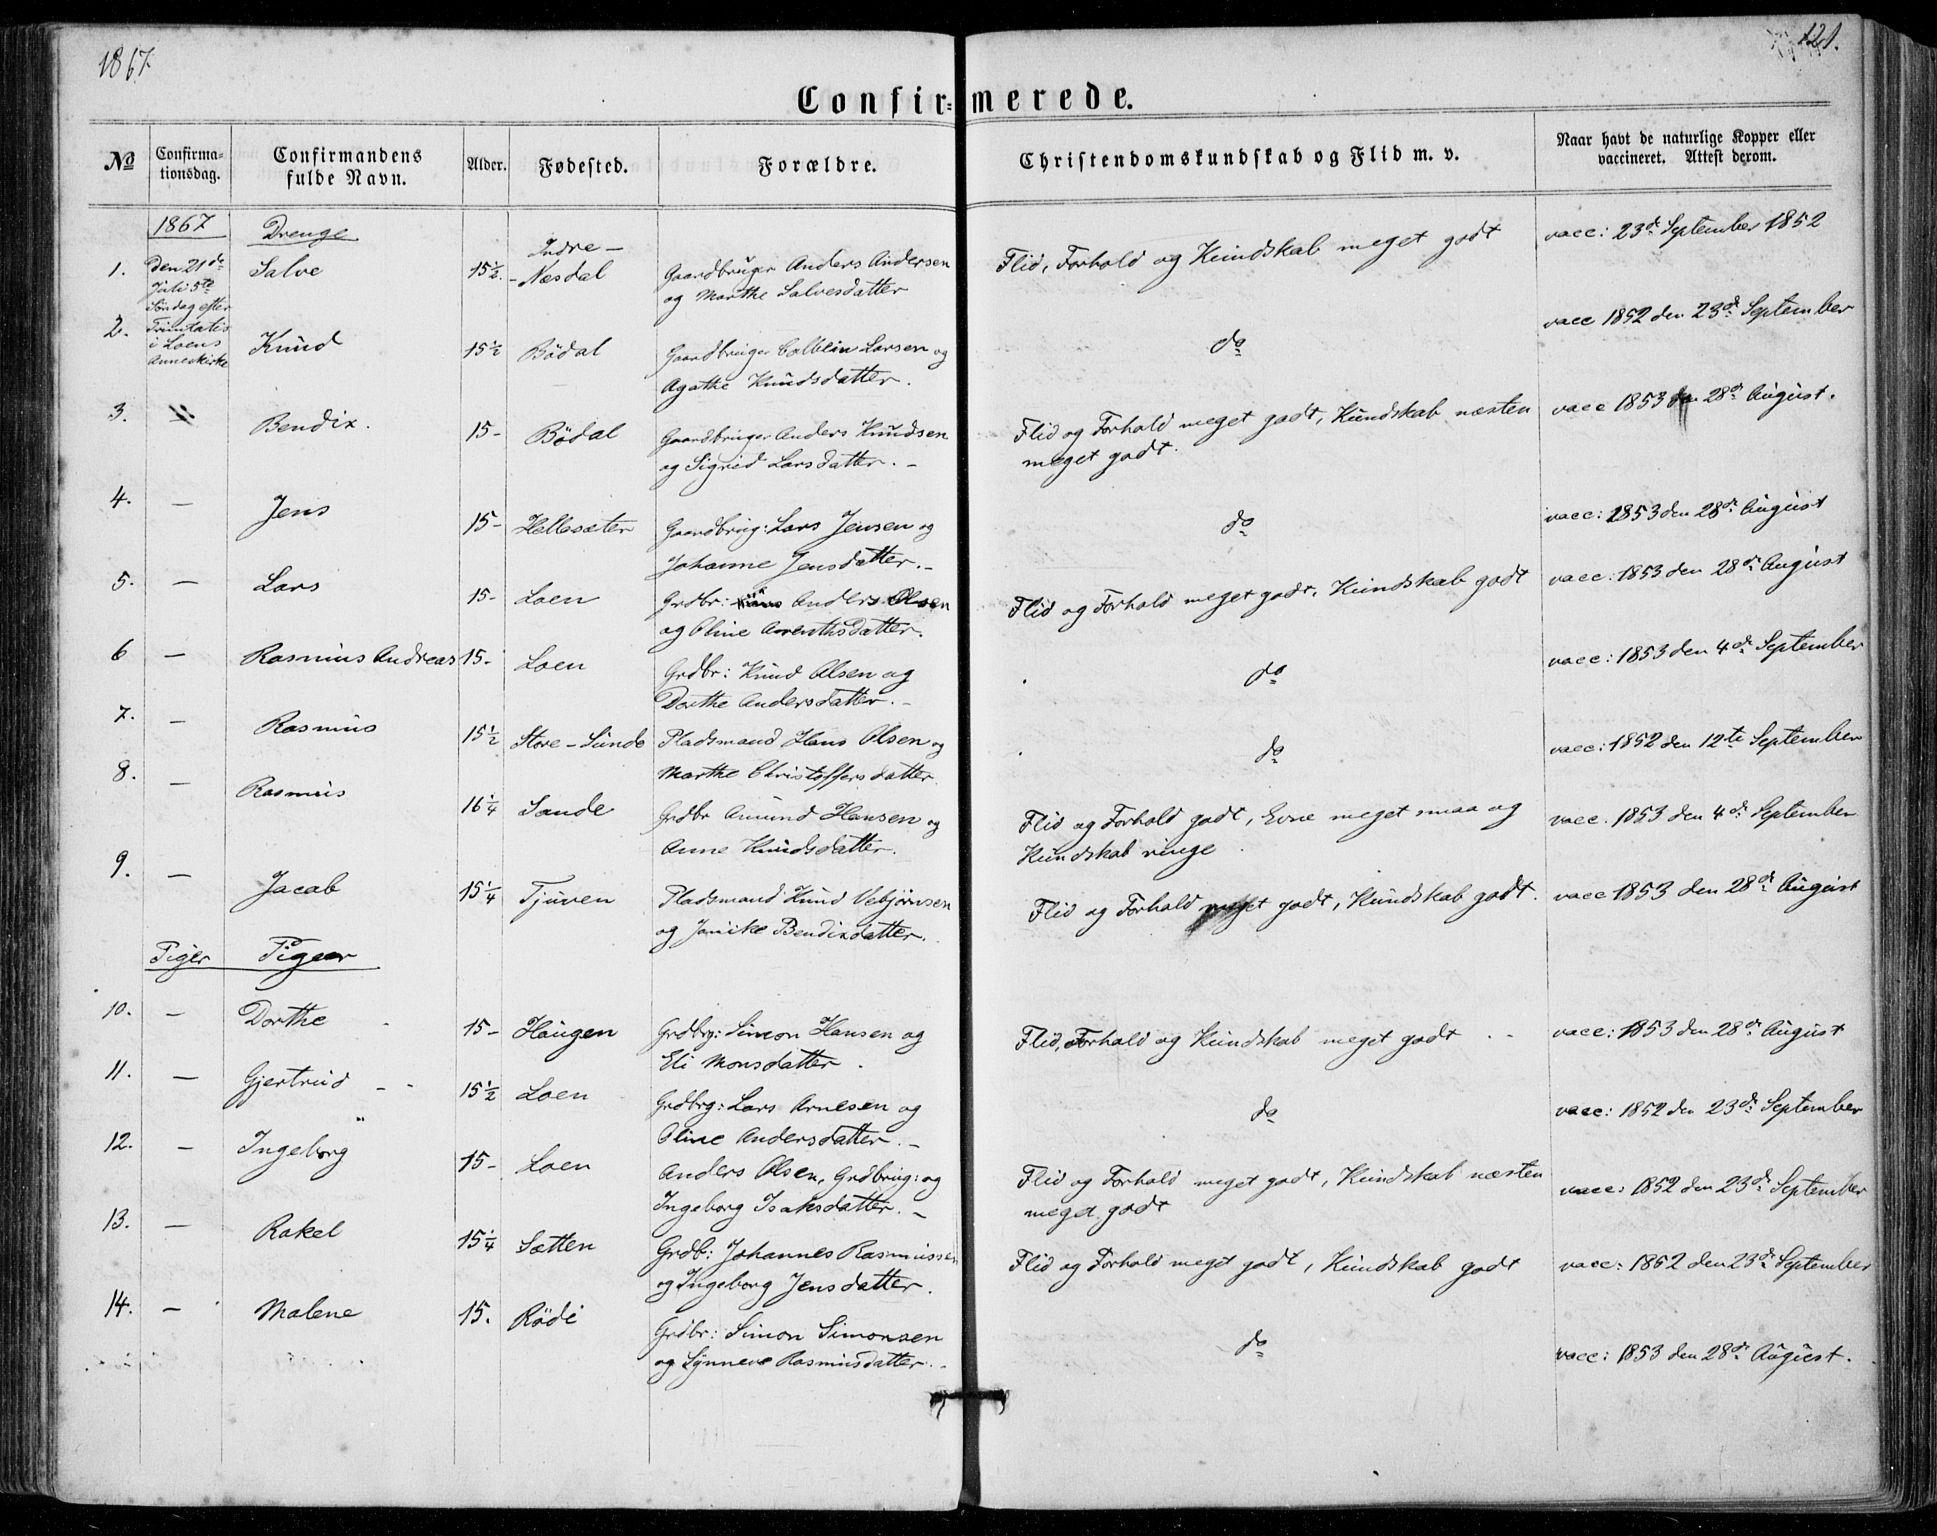 1867.
121.
Confirmerede.
No Confirmationsdag. Confirmandens fulde Navn. Alder. Fødested. Forældre. Christendomskundskab og Flid m. v. Naar havt de naturlige Kopper eller vaccineret. Attest derom.
1867 Drenge
1. Den 21de Salve 15½. Indre – Næsdal Gaardbruger Anders Andersen Flid, Forhold og Kundskab meget godt vacc: 23de September 1852
Juli 5te og Marthe Salvesdatter
Søndag efter
2. Trinitatis Knud 15½ Bödal Gaardbruger Colbein Larsen og do vacc 1852 den 23de September
i Loens Agathe Knudsdatter.
Anneskirke
3. Bendix. 15- Bödal Gaardbruger Anders Knudsen Flid og Forhold meget godt, Kundskab næsten vacc 1853 den 28de August.
og Sigrid Larsdatter. – meget godt.
4. – Jens 15- Hellesæter Gaardbrug: Lars Jensen og do vacc: 1853 den 28de August
Johanne Jensdatter. –
5. – Lars 15- Loen Grdbr: Anders Olsen Flid og Forhold meget godt, Kundskab godt vacc: 1853 den 28de August
og Oline Arenthsdatter.
6 – Rasmus Andreas 15- Loen Grdbr: Knud Olsen og do vacc: 1853 den 4de September
Dorthe Andersdatter. –
7. – Rasmus 15½ Store-Sunde Pladsmand Hans Olsen og do vacc: 1852 den 12te September
Marthe Christoffersdatter
8. – Rasmus 16¼ Sande Grdbr Amund Hansen og Flid og Forhold godt, Evne meget smaa og vacc. 1853 den 4de September
Anne Knudsdatter. Kundskab ringe.
9. – Jacob 15¼ Tjuven Pladsmand Knud Vebjørnsen Flid og Forhold meget godt, Kundskab godt. vacc 1853 den 28de August
og Janike Bendixdatter.
Piger Piger
10. – Dorthe 15- Haugen Grdbrg: Simon Hansen og Flid, Forhold og Kundskab meget godt vacc: 1853 den 28de August
Eli Monsdatter.
11. – Gjertrud 15½ Loen Grdbrg: Lars Arnesen og do vacc: 1852 den 23de September
Oline Andersdatter. –
12. – Ingeborg 15- Loen Anders Olsen, Grdbrug: og Flid og Forhold meget godt, Kundskab næsten vacc: 1852 den 23de September
Ingeborg Isaksdatter. – meget godt
13. – Rakel 15¼ Sætten Grdb: Johannes Rasmussen Flid og Forhold meget godt, Kundskab godt vacc: 1852 den 23de September
og Ingeborg Jensdatter.
14. – Malene 15. Rödi Grdbr: Simon Simonsen do vacc: 1853 den 28de August.
og Synneve Rasmusdatter. –